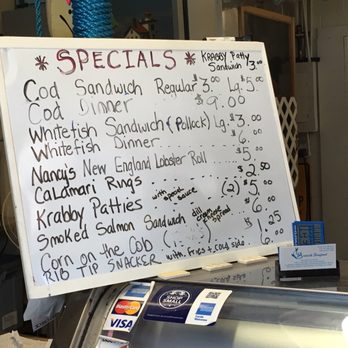 * SPECIALS *
KRABBY Patty
Sandwich $3.00
Cod Sandwich Regular $3.00 Lg. $5.00
Cod Dinner $9.00
Whitefish Sandwich (Pollock) Lg. $3.00
Whitefish Dinner 6.00
Nancy's New England Lobster Roll 5.
Calamari Rings with special sauce $2.50
Krabby Patties (2) $5.
Smoked Salmon Sandwich dill spread $6.
Corn on the Cob 1.25
RIB TIP SNACKER with Fries & Cold Side 6.
MasterCard
VISA
SHOP
SMALL